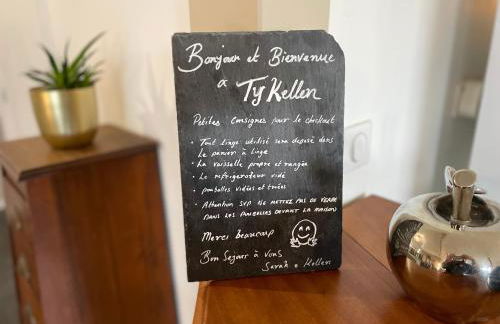 Bonjour et Bienvenue
a Ty Kellen
Petites Consignes pour le checkout
• Tout linge utilisé sera deposé dans
le panier à linge
• La vaisselle propre et rangée
• Le refrigerateur vidé
• poubelles vidées et triées
• Attention SVP NE METTEZ PAS DE VERRE
DANS LES POUBELLES DEVANT LA MAISON
Merci beaucoup
Bon Sejour à Vous
Sarah e Kellen